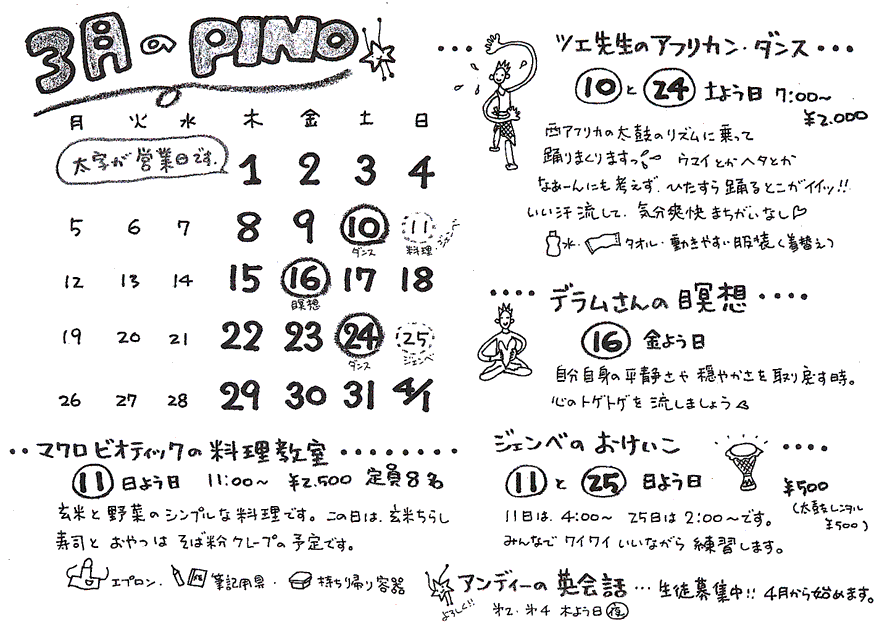 3月の PINO
月 火 水 木 金 土 日
太字が営業日です。
1 2 3 4
5 6 7 8 9 10 11
ダンス 料理・ジェンベ
12 13 14 15 16 17 18
瞑想
19 20 21 22 23 24 25
ダンス ジェンベ
26 27 28 29 30 31 4/1
・・マクロビオティックの料理教室・・・・・・・・
11 日よう日 11:00〜 ¥2.500 定員8名
玄米と野菜のシンプルな料理です。この日は、玄米ちらし
寿司と おやつは そば粉クレープの予定です。
エプロン・筆記用具・持ち帰り容器
・・・ツェ先生のアフリカン・ダンス・・・
10と24 土よう日 7:00〜
¥2.000
西アフリカの太鼓のリズムに乗って
踊りまくりますっ ウマイとかヘタとか
なぁーんにも考えず、ひたすら踊るとこがイイッ!!
いい汗流して、気分爽快まちがいなし♡
水・タオル・動きやすい服装(着替え)
・・・・デラムさんの瞑想・・・・
16 金よう日
自分自身の平静さや穏やかさを取り戻す時。
心のトゲトゲを流しましょう
ジェンベのおけいこ・・・・
11と25 日よう日 ¥500
(太鼓レンタル
¥500)
11日は、4:00〜 25日は2:00〜です。
みんなでワイワイいいながら練習します。
アンディーの英会話…生徒募集中!! 4月から始めます。
よろしく!! 第2・第4 木よう日(夜)